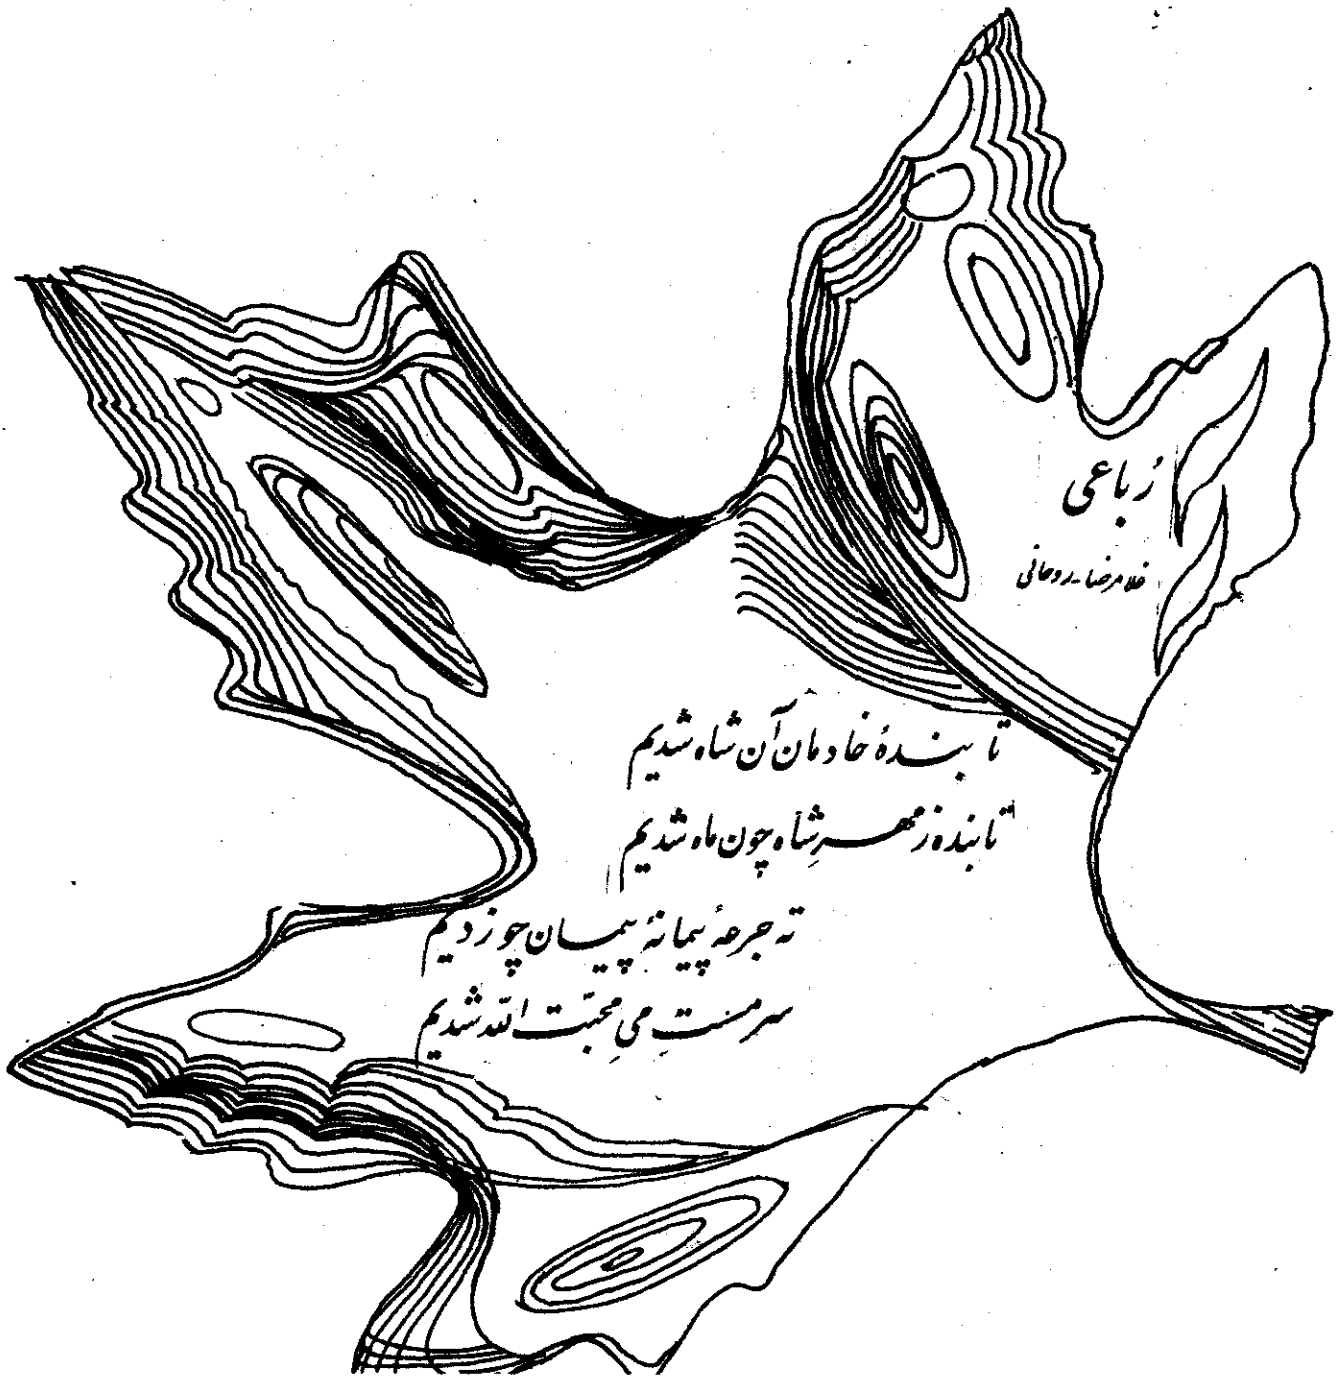 رُباعی
غلامرضا-روحانی
تا بندهٔ خادمان آن شاه شدیم
تابنده ز مهر شاه چون ماه شدیم
ته جرعهٔ پیمانهٔ پیمان چو زدیم
سرمست میِ محبّت اللّه شدیم